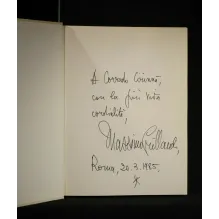 A Corrado
con la più viva
cordialità,
Massimo
Roma, 20.3.1985.